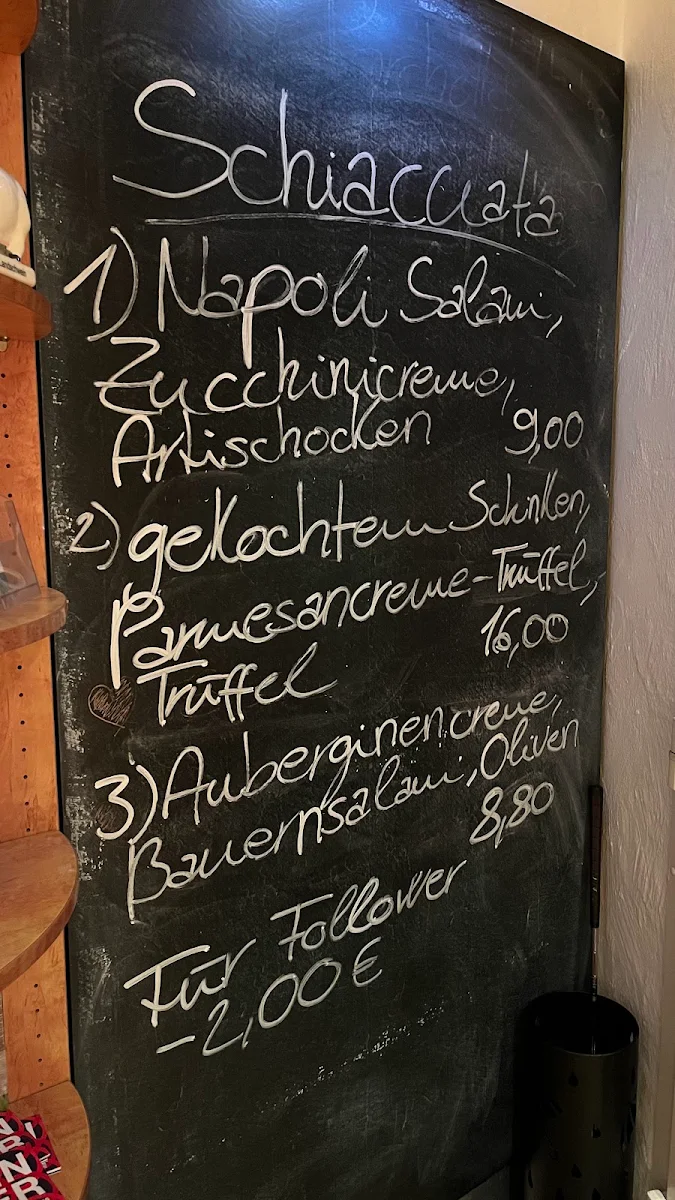 Schiaccuata
1) Napoli Salami,
Zucchinicreme,
Artischocken 9,00
2) gekochtem Schinken,
Parmesancreme-Trüffel,
Trüffel 16,00
3) Auberginencreme,
Bauernsalami, Oliven
8,80
Für Follower
-2,00€